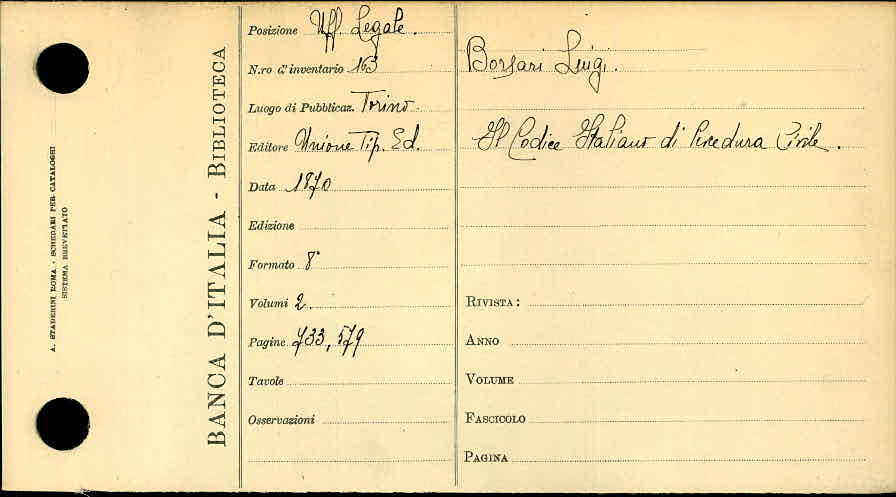 A. STADERINI, ROMA - SCHEDARI PER CATALOGHI
SISTEMA BREVETTATO
BANCA D'ITALIA - BIBLIOTECA
Posizione Uff. Legale.
N.ro d'inventario 163
Luogo di Pubblicaz. Torino
Editore Unione Tip. Ed.
Data 1870
Edizione
Formato 8°
Volumi 2.
Pagine 733, 579
Tavole
Osservazioni
Borsari Luigi.
Il Codice Italiano di Procedura Civile.
RIVISTA:
ANNO
VOLUME
FASCICOLO
PAGINA